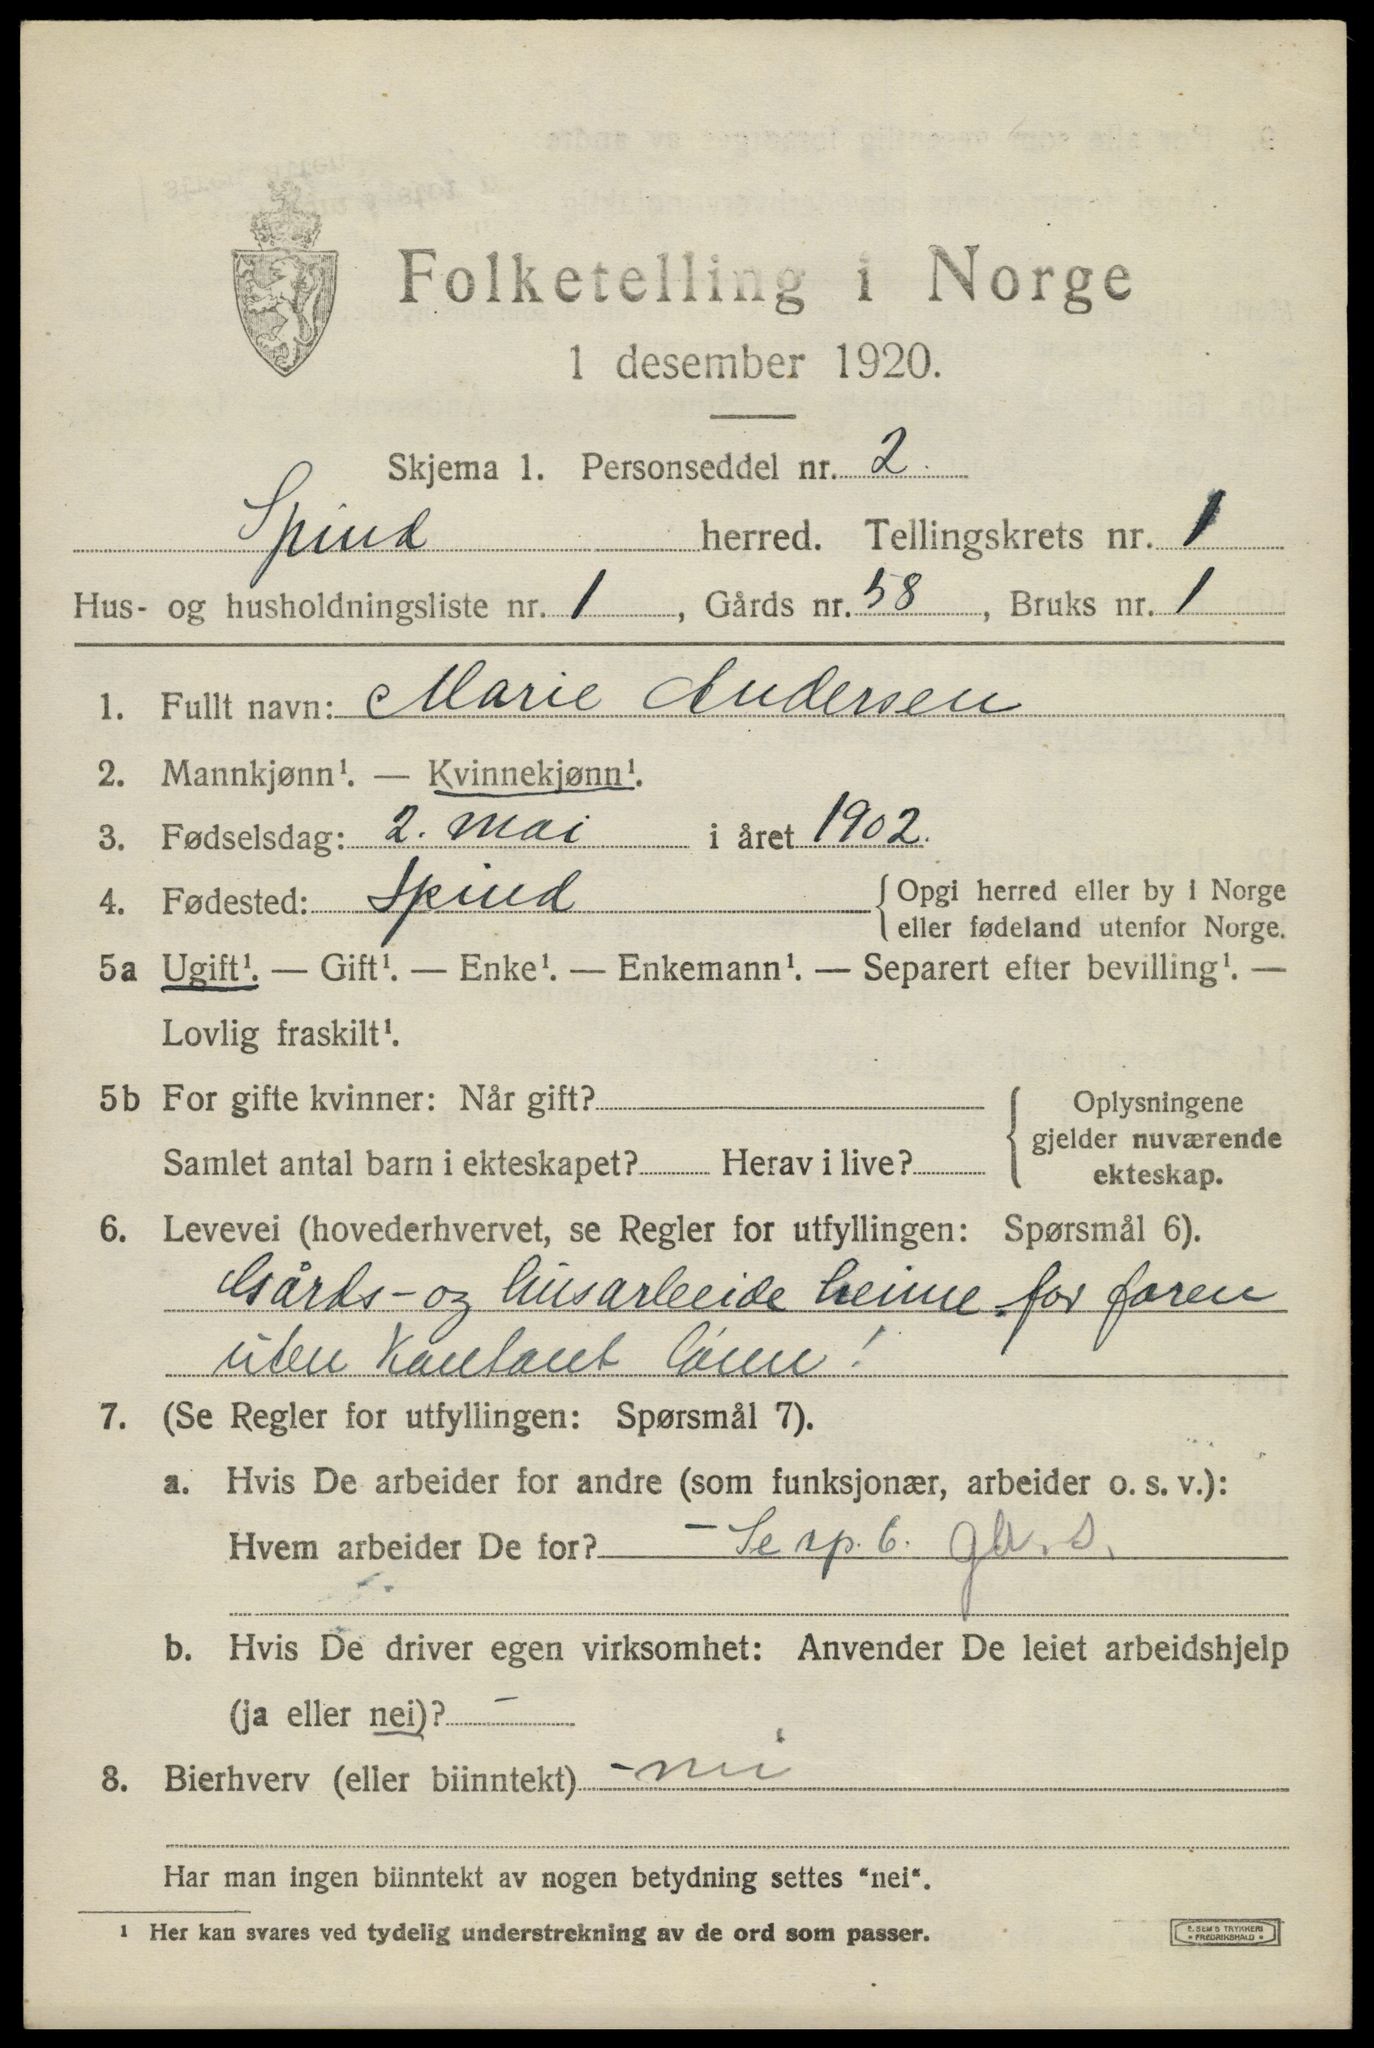 Folketelling i Norge
1 desember 1920.
Skjema 1. Personseddel nr. 2.
Spind herred. Tellingskrets nr. 1
Hus- og husholdningsliste nr. 1, Gårds nr. 58, Bruks nr. 1
1. Fullt navn: Marie Andersen
2. Mannkjønn¹. — Kvinnekjønn¹.
3. Fødselsdag: 2. mai i året 1902.
4. Fødested: Spind { Opgi herred eller by i Norge
eller fødeland utenfor Norge.
5a Ugift¹. — Gift¹. — Enke¹. — Enkemann¹. — Separert efter bevilling¹. —
Lovlig fraskilt¹.
5b For gifte kvinner: Når gift?
Samlet antal barn i ekteskapet? Herav i live?
{ Oplysningene
gjelder nuværende
ekteskap.
6. Levevei (hovederhvervet, se Regler for utfyllingen: Spørsmål 6).
Gårds- og husarbeide heime for faren
uten kontant lønn!
7. (Se Regler for utfyllingen: Spørsmål 7).
a. Hvis De arbeider for andre (som funksjonær, arbeider o. s. v.):
Hvem arbeider De for? — Se sp. 6. gb. s.
b. Hvis De driver egen virksomhet: Anvender De leiet arbeidshjelp
(ja eller nei)? —
8. Bierhverv (eller biinntekt) - nei
Har man ingen biinntekt av nogen betydning settes "nei".
1 Her kan svares ved tydelig understrekning av de ord som passer.
E. SEM'S TRYKKERI
FREDRIKSHALD